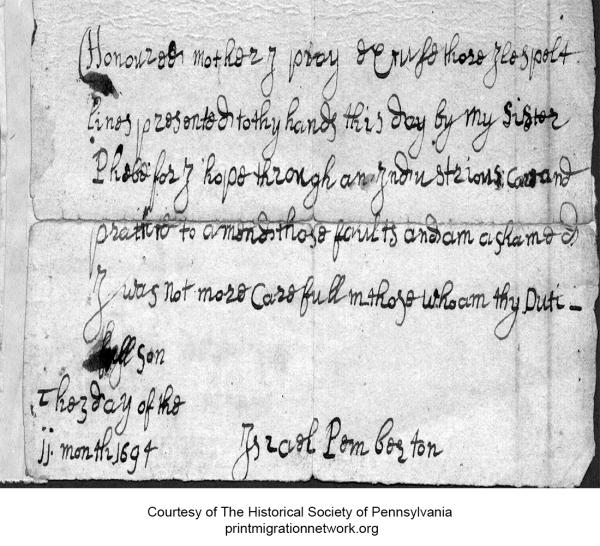 Honoured mother I pray Excuse those Ilespelt
lines presented to thy hands this day by my Sister
Phebe for I hope through an Industrious Care and
pratice to amend those faults and am ashamed
I was not more Carefull in those who am thy Duti-
full son
The 3 day of the
11 month 1694
Israel Pemberton
Courtesy of The Historical Society of Pennsylvania
printmigrationnetwork.org